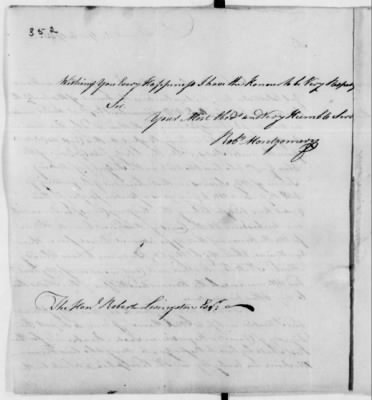 352
Wishing You Every Happiness I have the Honour to be Very Respy
Sir
Your Most Obdt and Very Humble Serv
Robt Montgomery
The Honl Robert Livingston Esqr